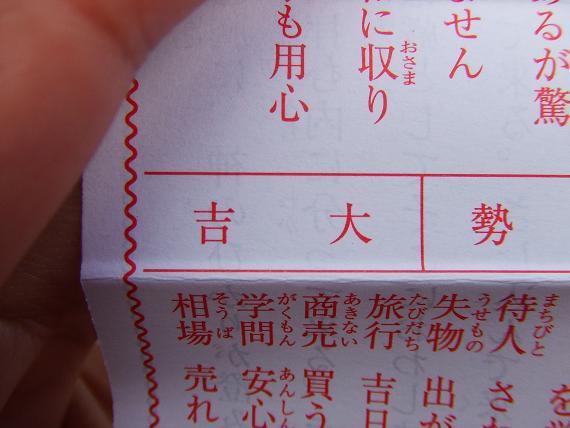 あるが驚
ません
に取り
おさま
も用心
勢
大吉
待人 さ
まちびと
失物 出が
うせもの
旅行 吉日
たびだち
商売 買う
あきない
学問 安心
がくもん あんしん
相場 売れ
そうば